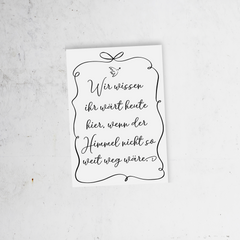 Wir wissen
ihr wärt heute
hier, wenn der
Himmel nicht so
weit weg wäre.